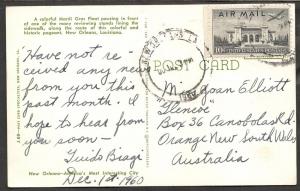 A colorful Mardi Gras Float passing in front
of one of the many reviewing stands lining the
sidewalk, along the route of this colorful and
historic pageant. New Orleans, Louisiana.
AIR MAIL
10¢ UNITED STATES POSTAGE
POST CARD
Have not re-
ceived any news
from you this
past month. I
hope to hear from
you soon.
Guido Biagi
Dec. 1st 1960
Elliott
"Glencoe"
Box 36 Canobolas Rd.
Orange New South Wales
Australia
New Orleans—America's Most Interesting City